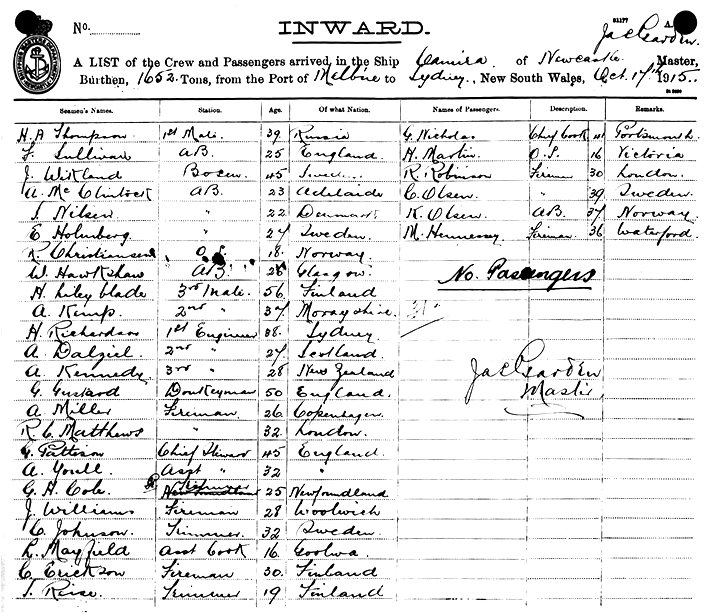 No.
INWARD.
51177
A
A LIST of the Crew and Passengers arrived in the Ship Camira of Newcastle Master,
Burthen, 1652 Tons, from the Port of Melbne to Sydney, New South Wales, Oct. 17th 1915.
Seamen's Names. Station. Age. Of what Nation. Names of Passengers. Description. Remarks.
H. A Thompson 1st Mate. 39 Russia G. Nicholas Chief Cook 41 Portsmouth
F. Sullivan A.B. 25 England. H. Martin O.S. 16 Victoria
J. Bosun 45 R. Robinson Fireman 30 London.
McClintock A.B. 23 Adelaide C. Olsen " 39 Sweden
Nilsen " 22 Denmark K. Olsen AB. 37 Norway.
E Holmberg " 27 Sweden. M. Hennessy Fireman. 36 Waterford.
R. Christiansen O.S. 18. Norway.
W. Hawkshaw AB. Glasgow. No. Passengers
H. 3rd Mate. 56. Finland
A. Kemp. 2nd " 37 Morayshire. 31
H Richardson 1st Engineer 38. Sydney.
A. Dalziel. 2nd " 27 Scotland.
A. Kennedy 3rd " 28 New Zealand
Master
G. Donkeyman 50 England.
A Miller Fireman. 26 Copenhagen.
R. C. Matthews " 32 London.
G. Patteson Chief Steward 45 England.
A. Youll. Asst " 32 "
G. H. Cole Newfoundland 25 Newfoundland
J. Williams Fireman 28 Woolwich
C. Johnson. Trimmer. 32 Sweden.
Mayfield Asst Cook 16. Goolwa.
C. Erickson Fireman 30. Finland
Trimmer 19 Finland